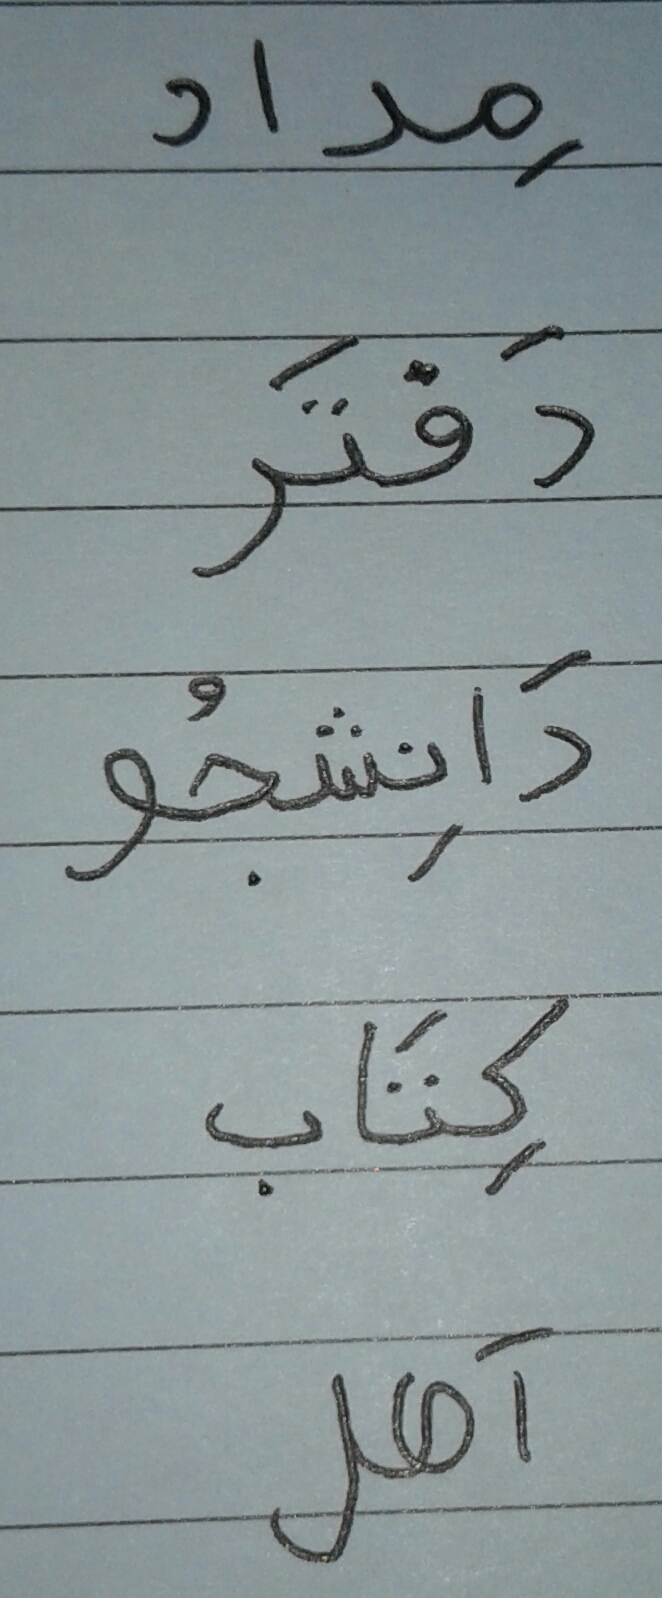 مِداد
دَفتَر
دَانِشجُو
کِتَاب
اَهل